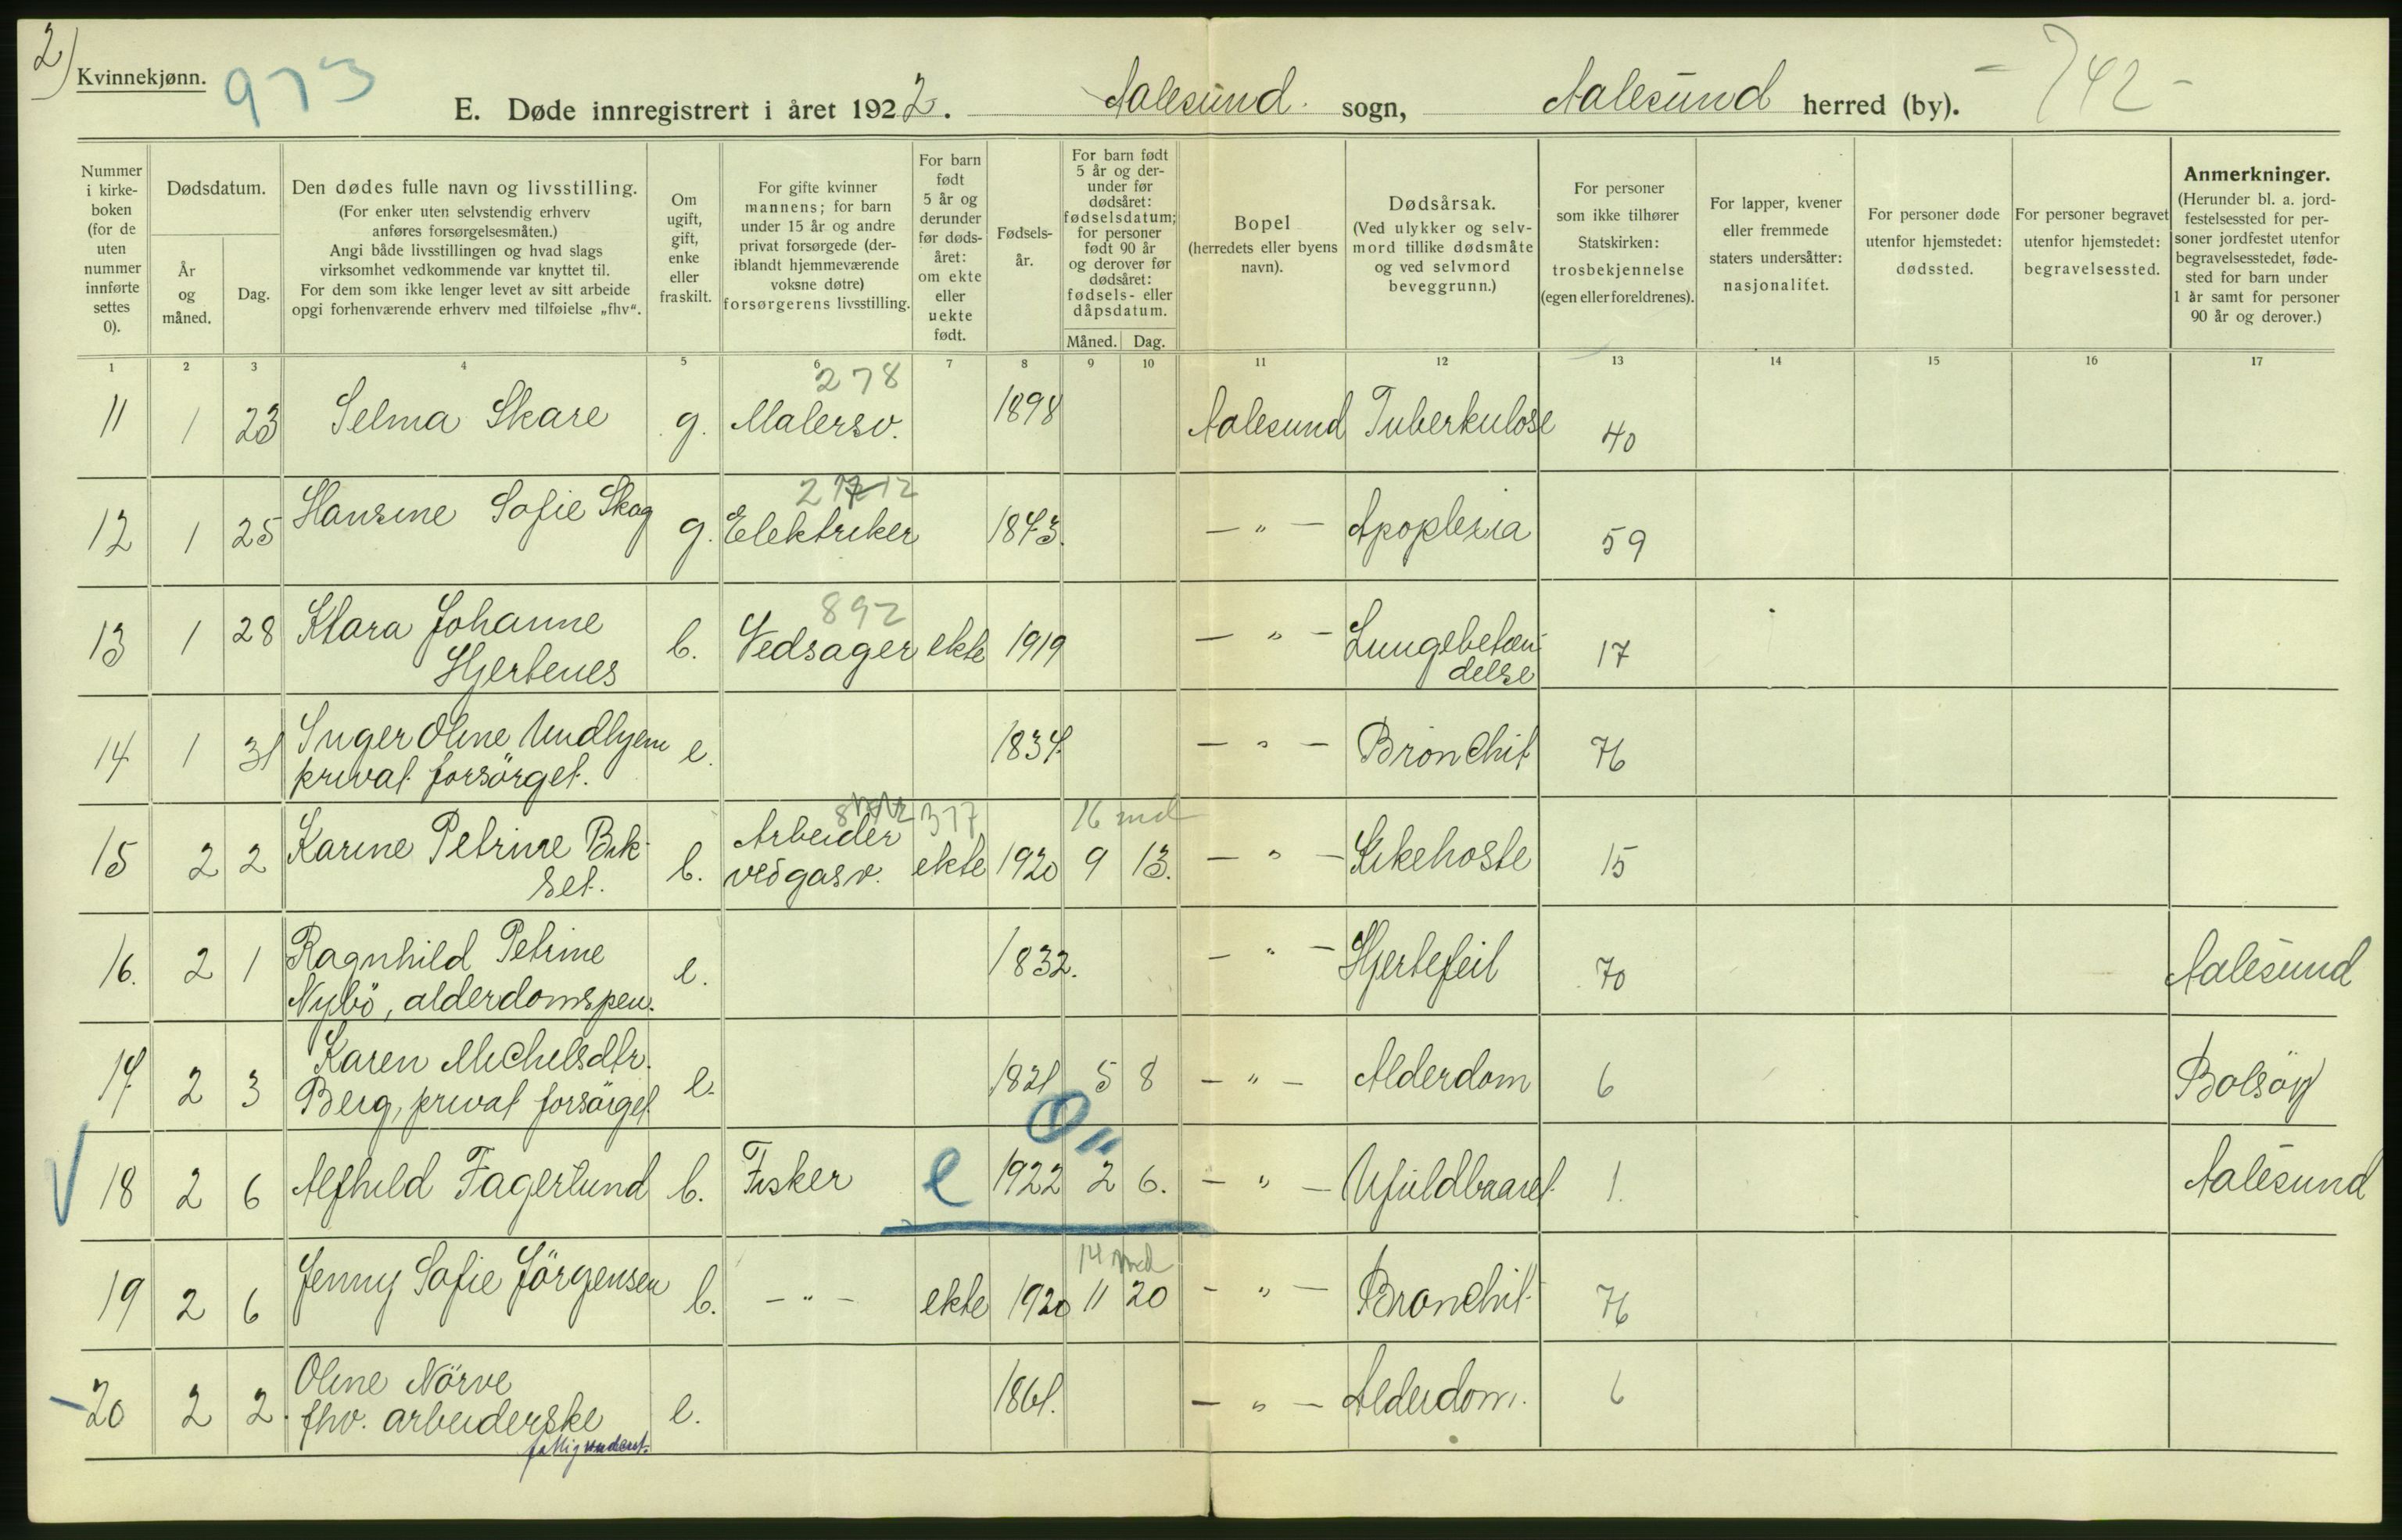 2)
Kvinnekjønn.
973
E. Døde innregistrert i året 1922. Aalesund sogn, Aalesund herred (by). - 742 -
Nummer i kirke-boken (for de uten nummer innførte settes 0).
Dødsdatum.
År og måned.
Dag.
Den dødes fulle navn og livsstilling.
(For enker uten selvstendig erhverv anføres forsørgelsesmåten.)
Angi både livsstillingen og hvad slags virksomhet vedkommende var knyttet til.
For dem som ikke lenger levet av sitt arbeide opgi forhenværende erhverv med tilføielse „fhv“.
Om ugift, gift, enke eller fraskilt.
For gifte kvinner mannens; for barn under 15 år og andre privat forsørgede (deriblandt hjemmeværende voksne døtre) forsørgerens livsstilling.
For barn født 5 år og derunder før døds-året: om ekte eller uekte født.
Fødsels-år.
For barn født 5 år og der-under før dødsåret: fødselsdatum; for personer født 90 år og derover før dødsåret: fødsels- eller dåpsdatum.
Måned. Dag.
Bopel (herredets eller byens navn).
Dødsårsak.
(Ved ulykker og selv-mord tillike dødsmåte og ved selvmord beveggrunn.)
For personer som ikke tilhører Statskirken: trosbekjennelse (egen eller foreldrenes).
For lapper, kvener eller fremmede staters undersåtter: nasjonalitet.
For personer døde utenfor hjemstedet: dødssted.
For personer begravet utenfor hjemstedet: begravelsessted.
Anmerkninger.
(Herunder bl. a. jord-festelsessted for per-soner jordfestet utenfor begravelsesstedet, føde-sted for barn under 1 år samt for personer 90 år og derover.)
1 2 3 4 5 6 7 8 9 10 11 12 13 14 15 16 17
278
11 1 23 Selma Skare g. Malersv. 1898 Aalesund Tuberkulose 40
12 1 25 Hansine Sofie Skog g. Elektriker 1843. - " - Apoplexia 59
892
13 1 28 Klara Johanne
Hjertenes b. Vedsager ekte 1919 - " - Lungebetæn-
delse 17
14 1 31 Inger Oline Undhjem e. 1834. - " - Bronchit 76
privat forsörget.
377 16 md
15 2 2 Karine Petrine Brk-
set. b. Arbeider
ved gasv. ekte 1920 9 13. - " - Kikehoste 15
16. 2 1 Ragnhild Petrine
Nybö, alderdomspen. e. 1832. - " - Hjertefeil 70 Aalesund
17. 2 3 Karen Michelsdtr.
Berg, privat forsörget e. 1821 5 8 - " - Alderdom 6 Bolsöy
0 "
18 2 6 Alfhild Fagerlund b. Fisker e 1922 2 6. - " - Ufuldbaaret. 1. Aalesund
14 md
19 2 6 Jenny Sofie Jörgensen b. - " - ekte 1920 11 20 - " - Bronchit. 76
20 2 2. Oline Nörve
fhv. arbeiderske e. 1861. - " - Alderdom. 6
fattigunderst.